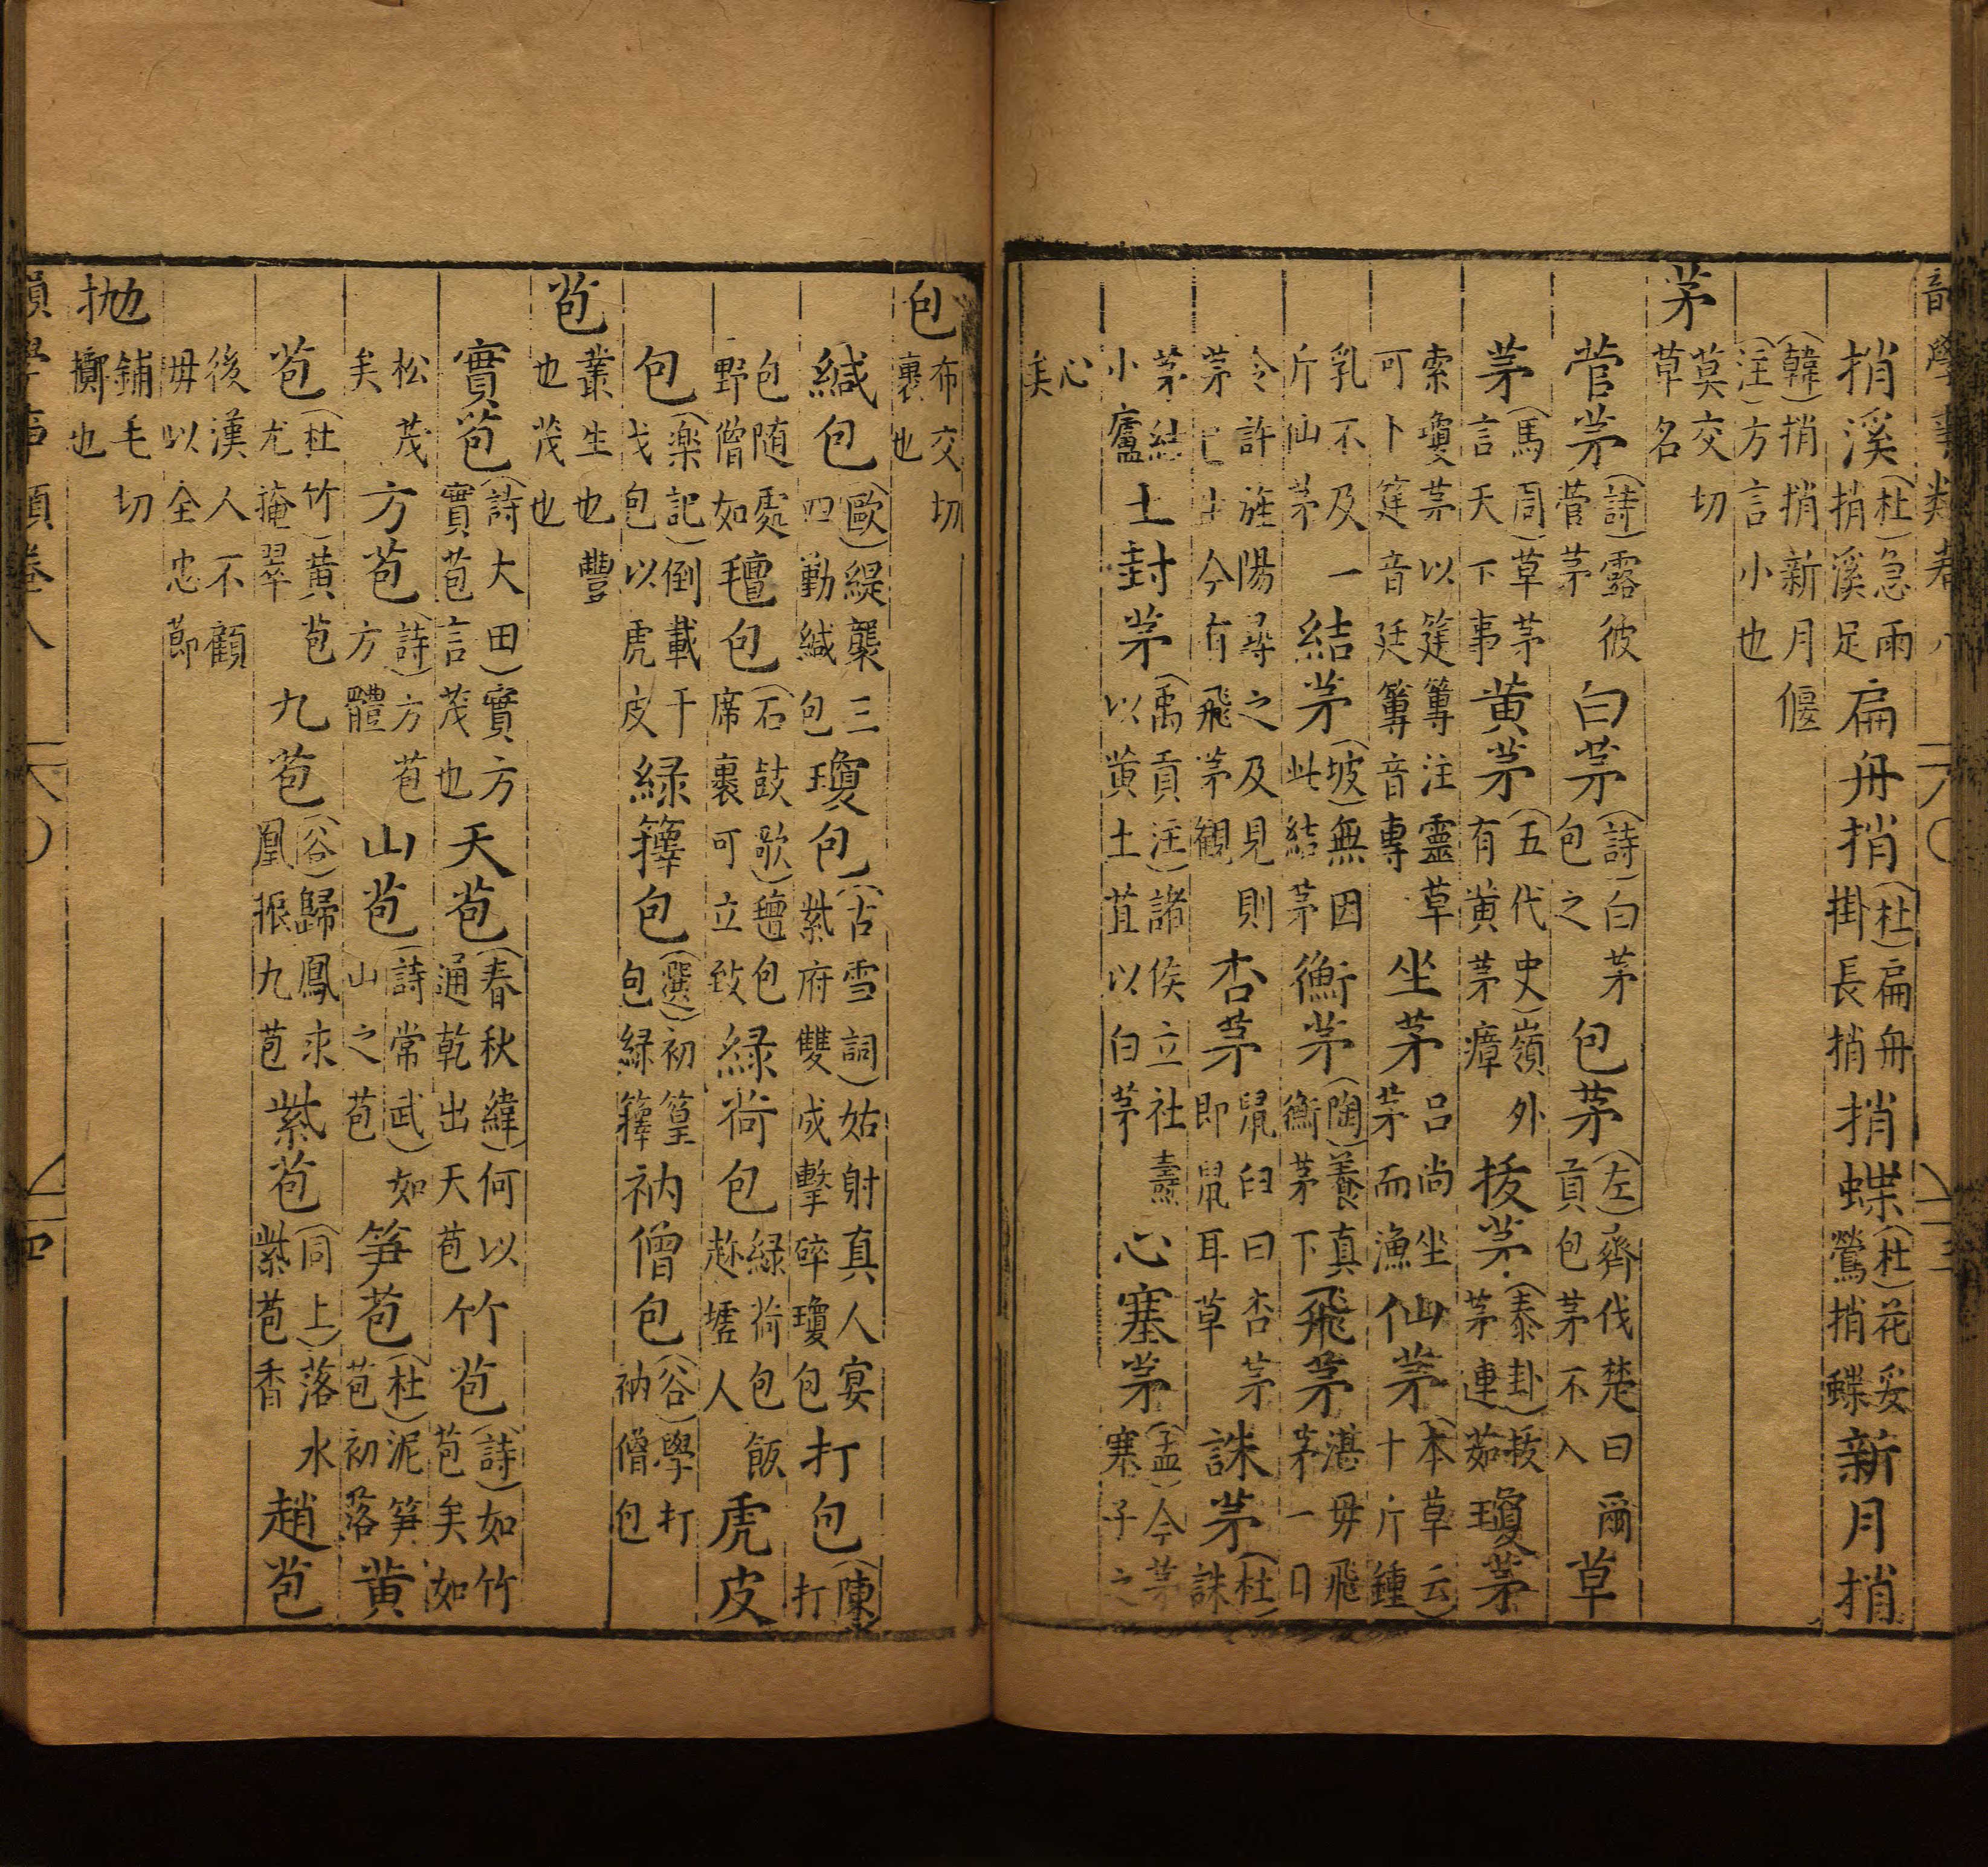 捎溪(杜)急雨捎溪足扁舟捎(杜)扁舟掛長捎捎蝶(杜)花妥鶯捎蝶新月捎
(韓)捎捎新月偃(注)方言小也
茅莫交切草名
菅茅(詩)露彼菅茅白茅(詩)白茅包之包茅(左)齊伐楚曰爾貢包茅不入草
茅(馬周)草茅言天下事黄茅(五代史)嶺外有黄茅瘴拔茅(泰卦)拔茅連茹瓊茅
索瓊茅以筳篿注靈草可卜筳音廷篿音專坐茅吕尚坐茅而漁仙茅(本草云)十斤鍾
乳不及一斤仙茅結茅(坡)無因此結茅衡茅(陶)養真衡茅下飛茅湛毋飛茅一日
令許旌陽尋之及見則茅已生今有飛茅觀杏茅鼠臼曰杏茅即鼠耳草誅茅(杜)誅
茅結小廬土封茅(禹貢注)諸侯立社燾以黄土苴以白茅心塞茅(孟)今茅塞子之
心矣
包布交切裹也
緘包(歐)緹襲三四勤緘包瓊包(古雪詞)姑射真人宴紫府雙成擊碎瓊包打包(陳)打
包随處野僧如氊包(石鼓歌)氊包席裹可立致緑荷包緑荷包飯趂墟人虎皮
包(楽記)倒載干戈包以虎皮緑籜包(選)初篁包緑籜衲僧包(谷)學打衲僧包
苞叢生也豐也茂也
實苞(詩大田)實方實苞言茂也天苞(春秋緯)何以通乾出天苞竹苞(詩)如竹苞矣如
松茂矣方苞(詩)方苞方體山苞(詩常武)如山之苞笋苞(杜)泥笋苞初落黄
苞(杜竹)黄苞尤掩翠九苞(谷)歸鳳求凰振九苞紫苞(同上)落水紫苞香趙苞
後漢人不顧毋以全忠節
抛鋪毛切擲也